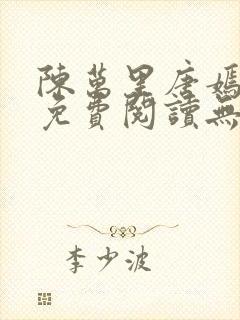 陳萬里唐嫣
免費閱讀無
李少波